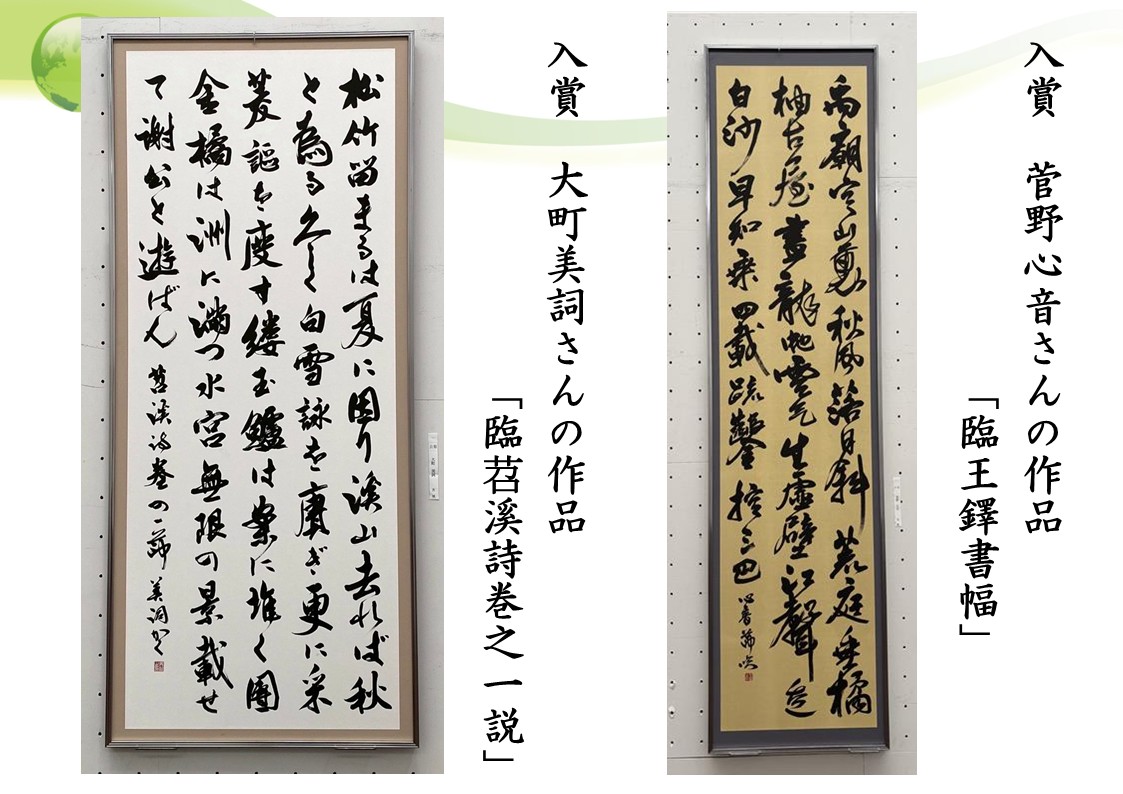 入賞 菅野心音さんの作品
「臨王鐸書幅」
禹廟空山裏秋風落日斜荒庭垂橘
柚古屋畫龍蛇雲气生虚壁江聲走
白沙早知乗四載疏鑿控三巴 心音
入賞 大町美詞さんの作品
「臨苕溪詩巻之一説」
松竹留まるは夏に因り溪山去れば秋
と為る久しく白雪詠を賡ぎ更に采
菱謳を度す縷玉鱸は案に堆く團
金橘は洲に満つ水宮無限の景載せ
て謝公と遊ばん 苕溪詩巻の一節 美詞かく